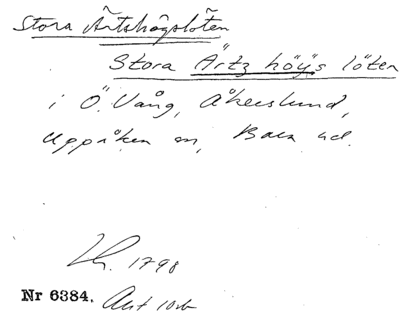 Stora Ärtshögslöten
Stora Ärtz höÿs löten
i Ö. Vång, Åkerslund,
Uppåkra sn, Bara hd.
Lh. 1798
Nr 6384. Akt 10b